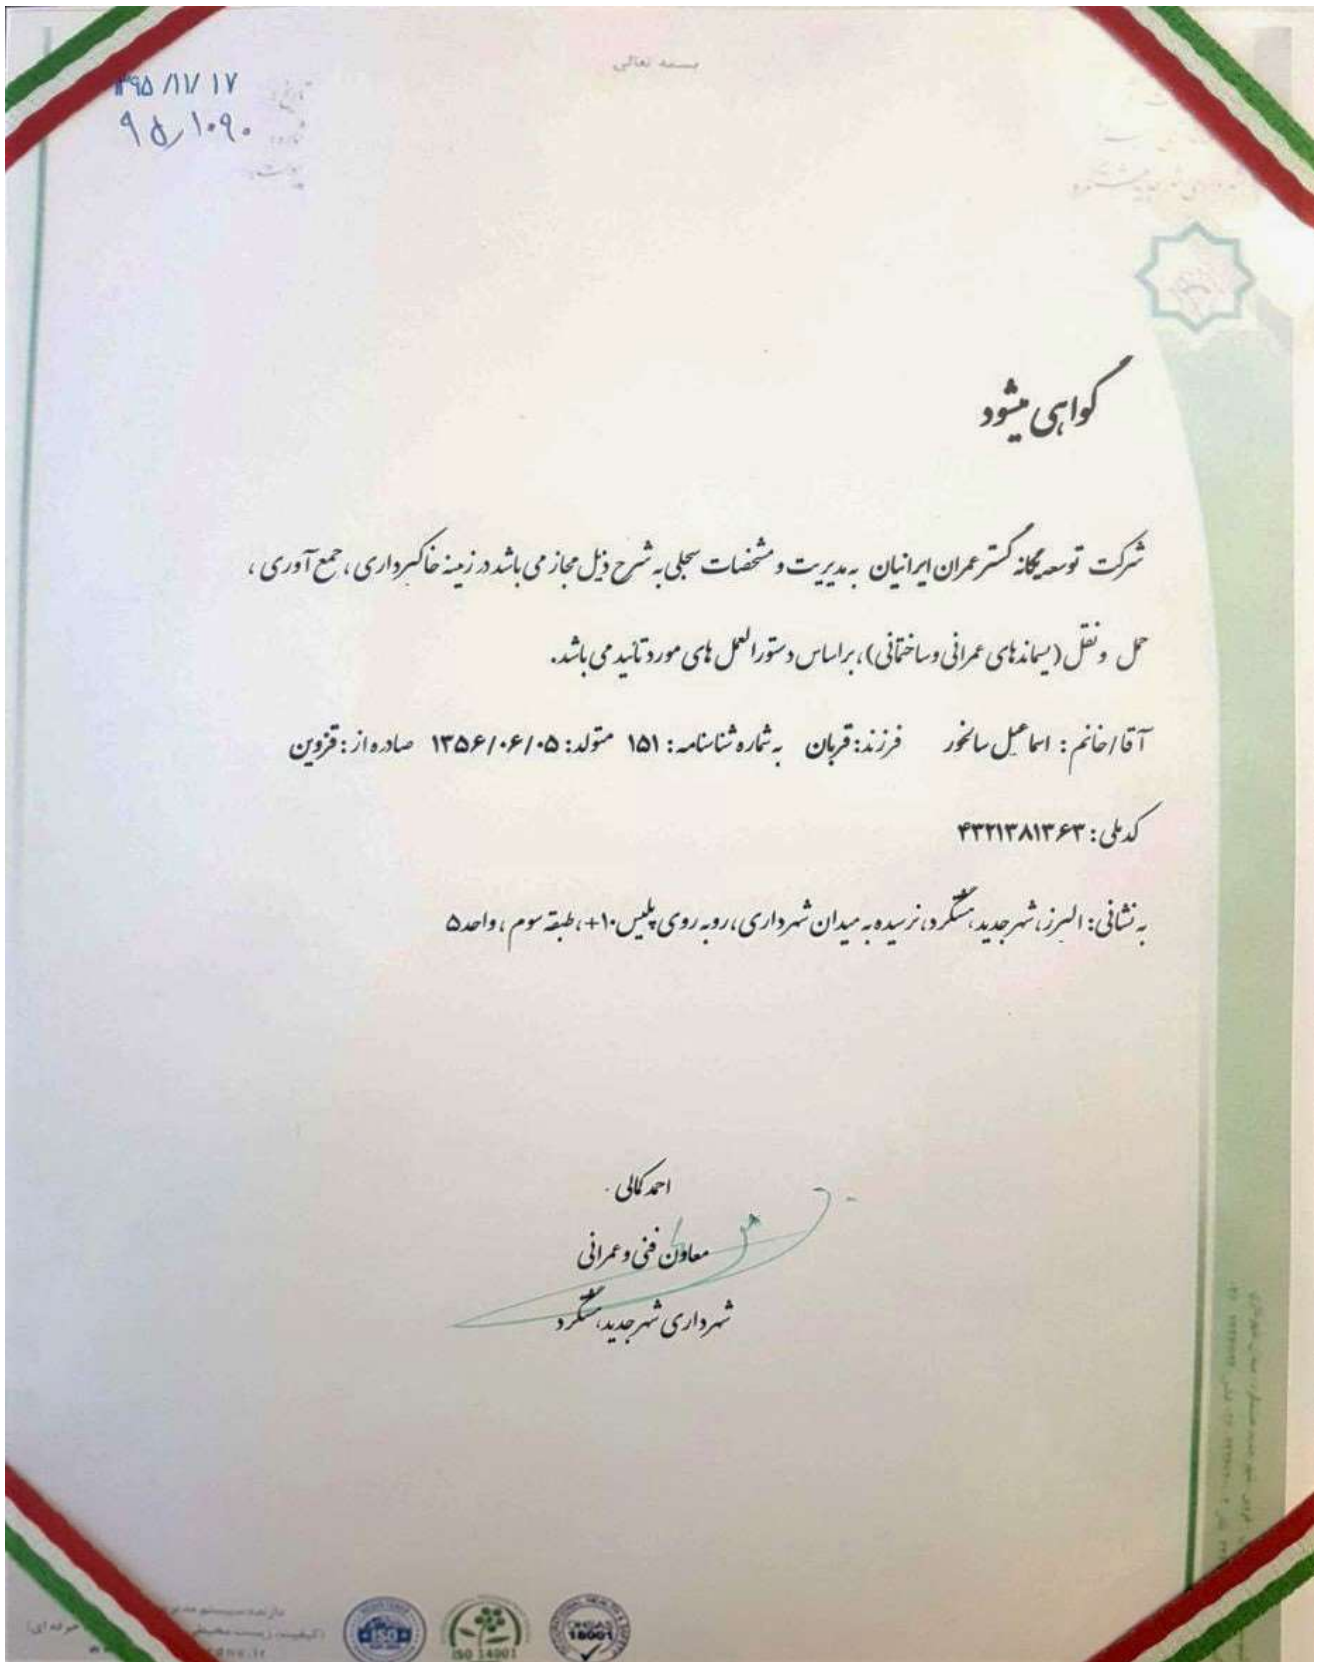 بسمه تعالی
۱۳۹۵/۱۱/۱۷
۹۵/۱۰۹۰
گواهی میشود
شرکت توسعه یگانه گستر عمران ایرانیان به مدیریت و مشخصات سجلی به شرح ذیل مجاز می باشد در زمینه خاکبرداری ، جمع آوری ،
حمل و نقل (پسماندهای عمرانی و ساختمانی)، براساس دستورالعمل های مورد تائید می باشد.
آقا/خانم : اسماعیل سالخور فرزند: قربان به شماره شناسنامه: ۱۵۱ متولد: ۱۳۵۶/۰۶/۰۵ صادره از: قزوین
کد ملی: ۴۳۲۱۳۸۱۳۶۳
به نشانی: البرز، شهر جدید هشتگرد، نرسیده به میدان شهرداری، روبه روی پلیس ۱۰+، طبقه سوم ، واحد ۵
احمد کمالی
معاون فنی و عمرانی
شهرداری شهر جدید هشتگرد
ISO
ISO 14001
OHSAS
18001